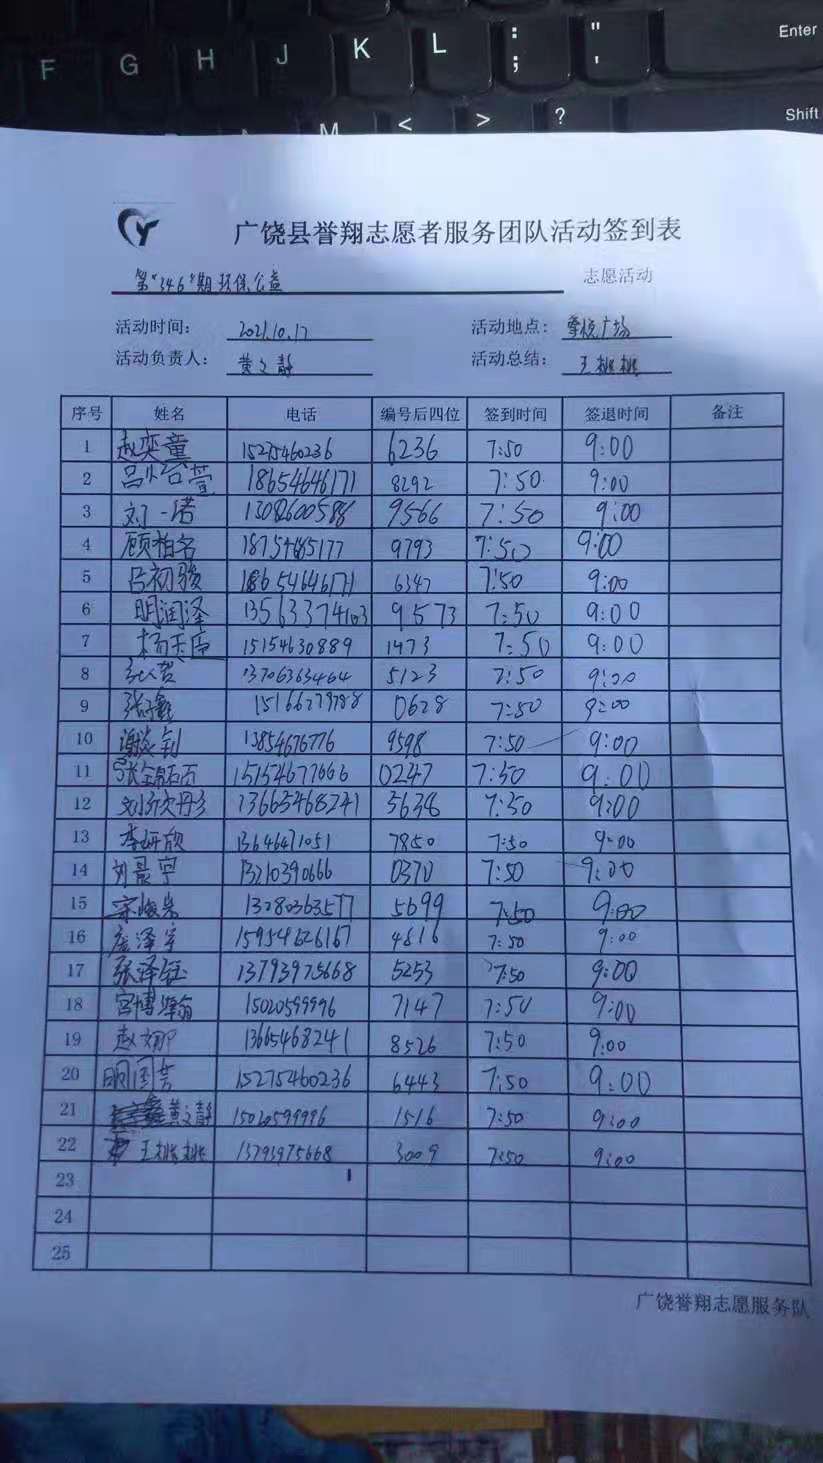 F G H J K L : ; " ' Enter
M < > ? Shift
广饶县誉翔志愿者服务团队活动签到表
第"346"期环保公益 志愿活动
活动时间: 2021.10.17 活动地点: 学校广场
活动负责人: 黄文静 活动总结: 王桃桃
序号 姓名 电话 编号后四位 签到时间 签退时间 备注
1 赵奕童 15275460236 6236 7:50 9:00
2 吕 萱 18654646171 8292 7:50 9:00
3 刘一诺 13082600588 9566 7:50 9:00
4 顾柏名 18754685177 9793 7:50 9:00
5 吕初骏 18654646171 6347 7:50 9:00
6 明润泽 13563374103 9573 7:50 9:00
7 杨 15154630889 1473 7:50 9:00
8 13706363464 5123 7:50 9:00
9 张 鑫 15166279788 0628 7:50 9:00
10 钊 13854676776 9598 7:50 9:00
11 张 15154677666 0247 7:50 9:00
12 刘 13665468241 5638 7:50 9:00
13 李妍欣 13646471051 7850 7:50 9:00
14 刘景宇 13210390666 0370 7:50 9:00
15 宋 13280363577 5699 7:50 9:00
16 泽 15954626167 4816 7:50 9:00
17 张泽钰 13793975668 5253 7:50 9:00
18 宫博瀚 15020599996 7147 7:50 9:00
19 赵 13665468241 8526 7:50 9:00
20 明 15275460236 6443 7:50 9:00
21 黄文静 15020599996 1516 7:50 9:00
22 王桃桃 13793975668 3009 7:50 9:00
23
24
25
广饶誉翔志愿服务队